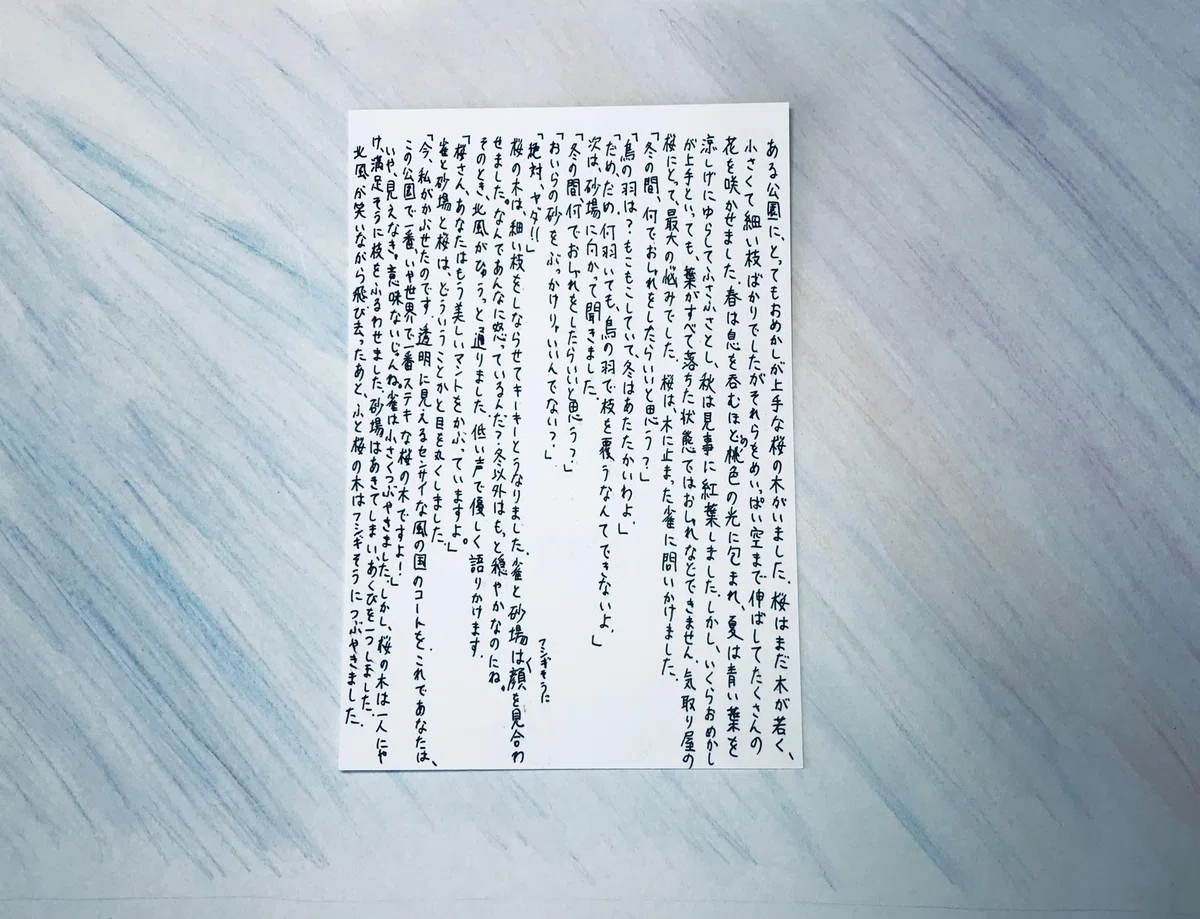 ある公園に、とってもおめかしが上手な桜の木がいました。桜はまだ木が若く、
小さくて細い枝ばかりでしたがそれらをめいっぱい空まで伸ばしてたくさんの
花を咲かせました。春は息を呑むほど桃色の光に包まれ、夏は青い葉を
涼しげにゆらしてふさふさとし、秋は見事に紅葉しました。しかし、いくらおめかし
が上手といっても、葉がすべて落ちた状態ではおしゃれなどできません。気取り屋の
桜にとって、最大の悩みでした。桜は、木に止まった雀に問いかけました。
「冬の間、何でおしゃれをしたらいいと思う？」
「鳥の羽は？もこもこしていて、冬はあたたかいわよ。」
「だめ、だめ。何羽いても、鳥の羽で枝を覆うなんてできないよ。」
次は、砂場に向かって聞きました。
「冬の間、何でおしゃれをしたらいいと思う？」
「おいらの砂をぶっかけりゃいいんでない？」
「絶対、ヤダ！！」
桜の木は、細い枝をしならせてキーキーとうなりました。雀と砂場はフシギそうに顔を見合わ
せました。なんであんなに怒っているんだ？冬以外はもっと穏やかなのにね。
そのとき、北風がひゅうっと通りました。低い声で優しく語りかけます。
「桜さん、あなたはもう美しいマントをかぶっていますよ。」
雀と砂場と桜は、どういうことかと目を丸くしました。
「今、私がかぶせたのです。透明に見えるセンサイな風の国のコートを。これであなたは、
この公園で一番、いや世界で一番ステキな桜の木ですよ！」
いや、見えなきゃ意味ないじゃんね。雀は小さくつぶやきました。しかし、桜の木は一人にや
け、満足そうに枝をふるわせました。砂場はあきてしまい、あくびを一つしました。
北風が笑いながら飛び去ったあと、ふと桜の木はフシギそうにつぶやきました。